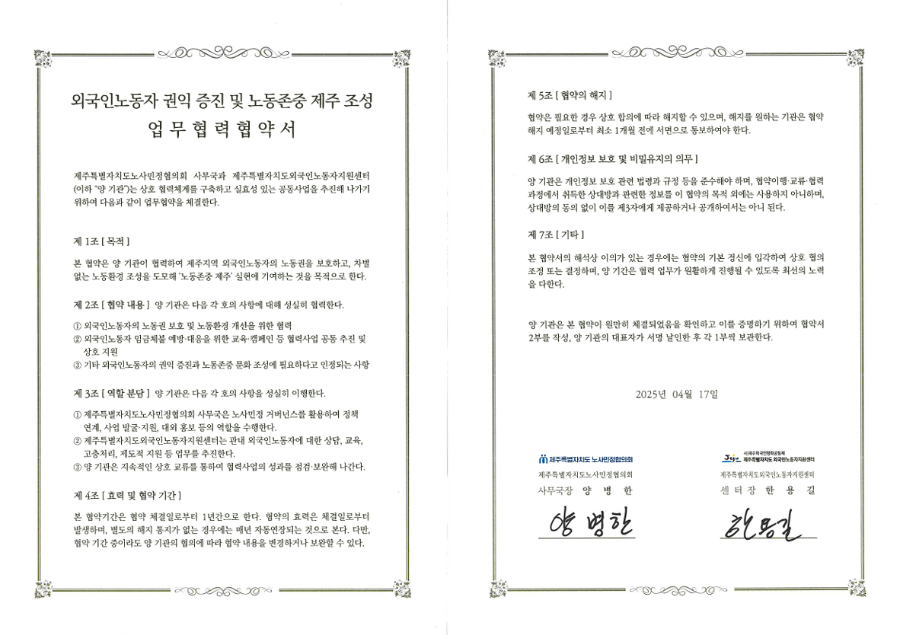 외국인노동자 권익 증진 및 노동존중 제주 조성
업무협력협약서
제주특별자치도노사민정협의회 사무국과 제주특별자치도외국인노동자지원센터
(이하 "양 기관")는 상호 협력체계를 구축하고 실효성 있는 공동사업을 추진해 나가기
위하여 다음과 같이 업무협약을 체결한다.
제 1조 [ 목적 ]
본 협약은 양 기관이 협력하여 제주지역 외국인노동자의 노동권을 보호하고, 차별
없는 노동환경 조성을 도모해 '노동존중 제주' 실현에 기여하는 것을 목적으로 한다.
제 2조 [ 협약 내용 ] 양 기관은 다음 각 호의 사항에 대해 성실히 협력한다.
① 외국인노동자의 노동권 보호 및 노동환경 개선을 위한 협력
② 외국인노동자 임금체불 예방·대응을 위한 교육·캠페인 등 협력사업 공동 추진 및
상호 지원
③ 기타 외국인노동자의 권익 증진과 노동존중 문화 조성에 필요하다고 인정되는 사항
제 3조 [ 역할 분담 ] 양 기관은 다음 각 호의 사항을 성실히 이행한다.
① 제주특별자치도노사민정협의회 사무국은 노사민정 거버넌스를 활용하여 정책
연계, 사업 발굴·지원, 대외 홍보 등의 역할을 수행한다.
② 제주특별자치도외국인노동자지원센터는 관내 외국인노동자에 대한 상담, 교육,
고충처리, 제도적 지원 등 업무를 추진한다.
③ 양 기관은 지속적인 상호 교류를 통하여 협력사업의 성과를 점검·보완해 나간다.
제 4조 [ 효력 및 협약 기간 ]
본 협약기간은 협약 체결일로부터 1년간으로 한다. 협약의 효력은 체결일로부터
발생하며, 별도의 해지 통지가 없는 경우에는 매년 자동연장되는 것으로 본다. 다만,
협약 기간 중이라도 양 기관의 협의에 따라 협약 내용을 변경하거나 보완할 수 있다.
제 5조 [ 협약의 해지 ]
협약은 필요한 경우 상호 합의에 따라 해지할 수 있으며, 해지를 원하는 기관은 협약
해지 예정일로부터 최소 1개월 전에 서면으로 통보하여야 한다.
제 6조 [ 개인정보 보호 및 비밀유지의 의무 ]
양 기관은 개인정보 보호 관련 법령과 규정 등을 준수해야 하며, 협약이행·교류·협력
과정에서 취득한 상대방과 관련한 정보를 이 협약의 목적 외에는 사용하지 아니하며,
상대방의 동의 없이 이를 제3자에게 제공하거나 공개하여서는 아니 된다.
제 7조 [ 기타 ]
본 협약서의 해석상 이의가 있는 경우에는 협약의 기본 정신에 입각하여 상호 협의
조정 또는 결정하며, 양 기간은 협력 업무가 원활하게 진행될 수 있도록 최선의 노력
을 다한다.
양 기관은 본 협약이 원만히 체결되었음을 확인하고 이를 증명하기 위하여 협약서
2부를 작성, 양 기관의 대표자가 서명 날인한 후 각 1부씩 보관한다.
2025년 04월 17일
제주특별자치도 노사민정협의회
제주특별자치도노사민정협의회
사무국장 양 병 한
양병한
제주특별자치도 외국인노동자지원센터
제주특별자치도외국인노동자지원센터
센터장 한 용 길
한용길